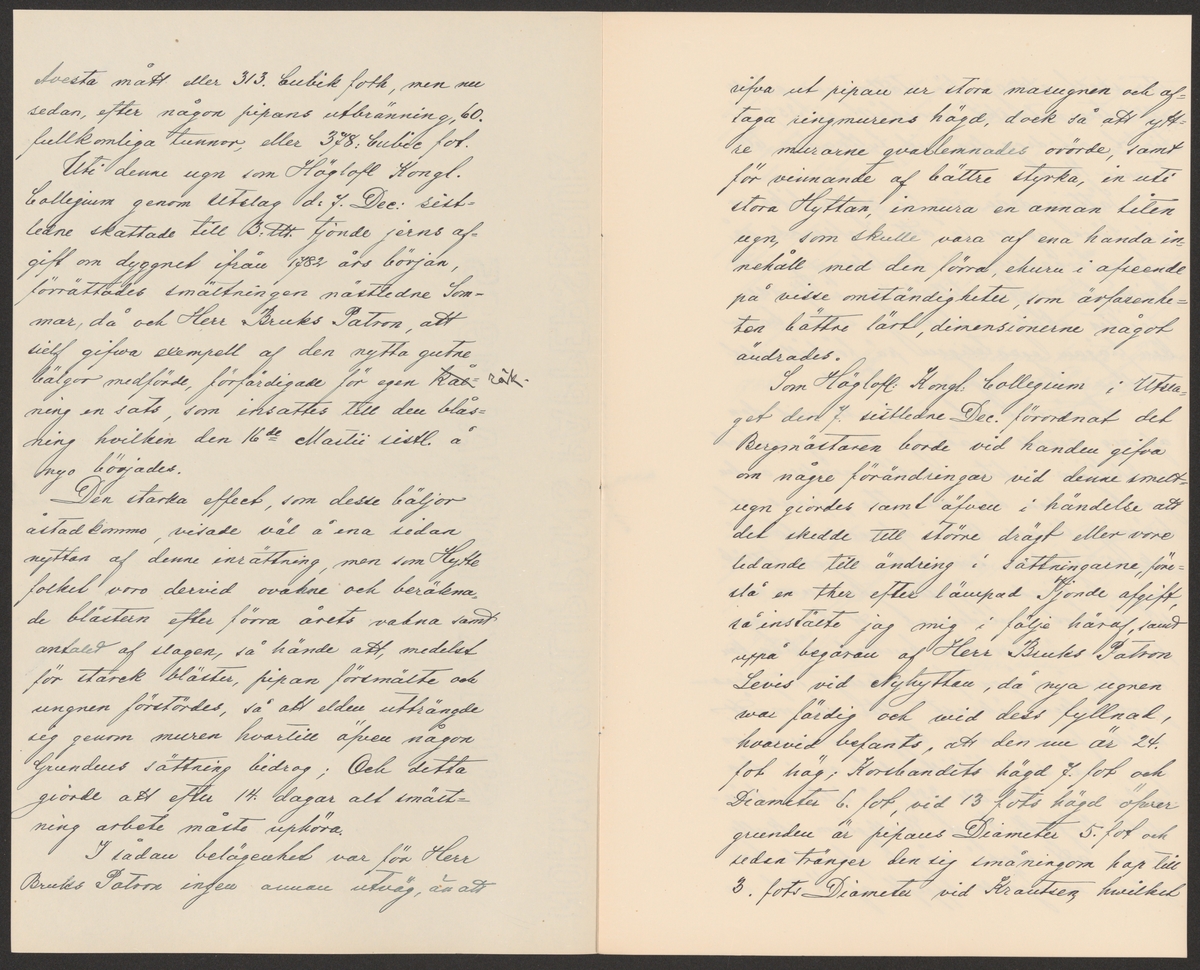 Avesta mått eller 313. Cubik foth, men nu
sedan, efter någon pipans utbränning, 60.
fullkomliga tunnor eller 378: Cubic fot.
Uti denne ugn som Höglofl Kongl.
Collegium genom Utslag d: 7. Dec: sist-
ledne skattade till 3: tt. Tjonde jerns af=
gift om dyggnet ifrån 1782 års början,
förrättades smältningen nästledne Som-
mar, då och Herr Bruks Patron, att
sielf gifwa exempell af den nytta gutne
bälgor medförde, förfärdigade för egen råk-
ning en sats, som insattes till den blås=
ning hvilken den 16de Martii sistl. å
nyo börjades.
Den starka effect, som desse bäljor
åstadkommo, visade väl å ena sidan
nyttan af denne inrättning, men som Hytte
folket voro dervid ovahne och beräkna-
de blästern efter förra årets vatna samt
antaled af slagen, så hände att, medelst
för stärck bläster, pipan försmälte och
ungnen förstördes, så att elden utträngde
sig genom muren hvartill äfven någon
Grundens sättning bidrog; Och detta
giorde att efter 14. dagar alt smält=
ning arbete måste uphöra.
I sådan belägenhet var för Herr
Bruks Patron ingen annan utväg, än att
rifva ut pipan ur stora masugnen och af=
taga ringmurens högd, dock så att ytt-
re murarne qvarlemnades orörde, samt
för vinnande af bättre styrka, in uti
stora Hyttan, inmura en annan liten
ugn, som skulle vara af ena handa in
nehåll med den förra, ehuru i afseende
på visse omständigheter, som ärfarenhe=
ten bättre lärt, dimensionerne något
ändrades.
Som Höglofl: Kongl: Collegium i Utsla=
get den 7. sistledne Dec. förordnat det
Bergmästaren borde vid handen gifva
om någre förändringar vid denne smelt=
ugn giordes samt äfven i händelse att
det skedde till större drägt eller vore
ledande till ändring i Sättningarne, före-
slå en ther efter lämpad Tjonde afgift,
så instälte jag mig i följe häraf, samt
uppå begäran af Herr Bruks Patron
Levis vid Nyhyttan, då nya ugnen
war färdig och wid dess fyllnad,
hvarvid befants, att den nu är 24.
fot hög; Korsbandets högd 7. fot och
Diameter 6. fot, vid 13 fots högd öfver
grunden är pipans Diameter 5. fot och
sedan tränger den sig småningom hop till
3. fots Diameter vid Krantsen, hwilket